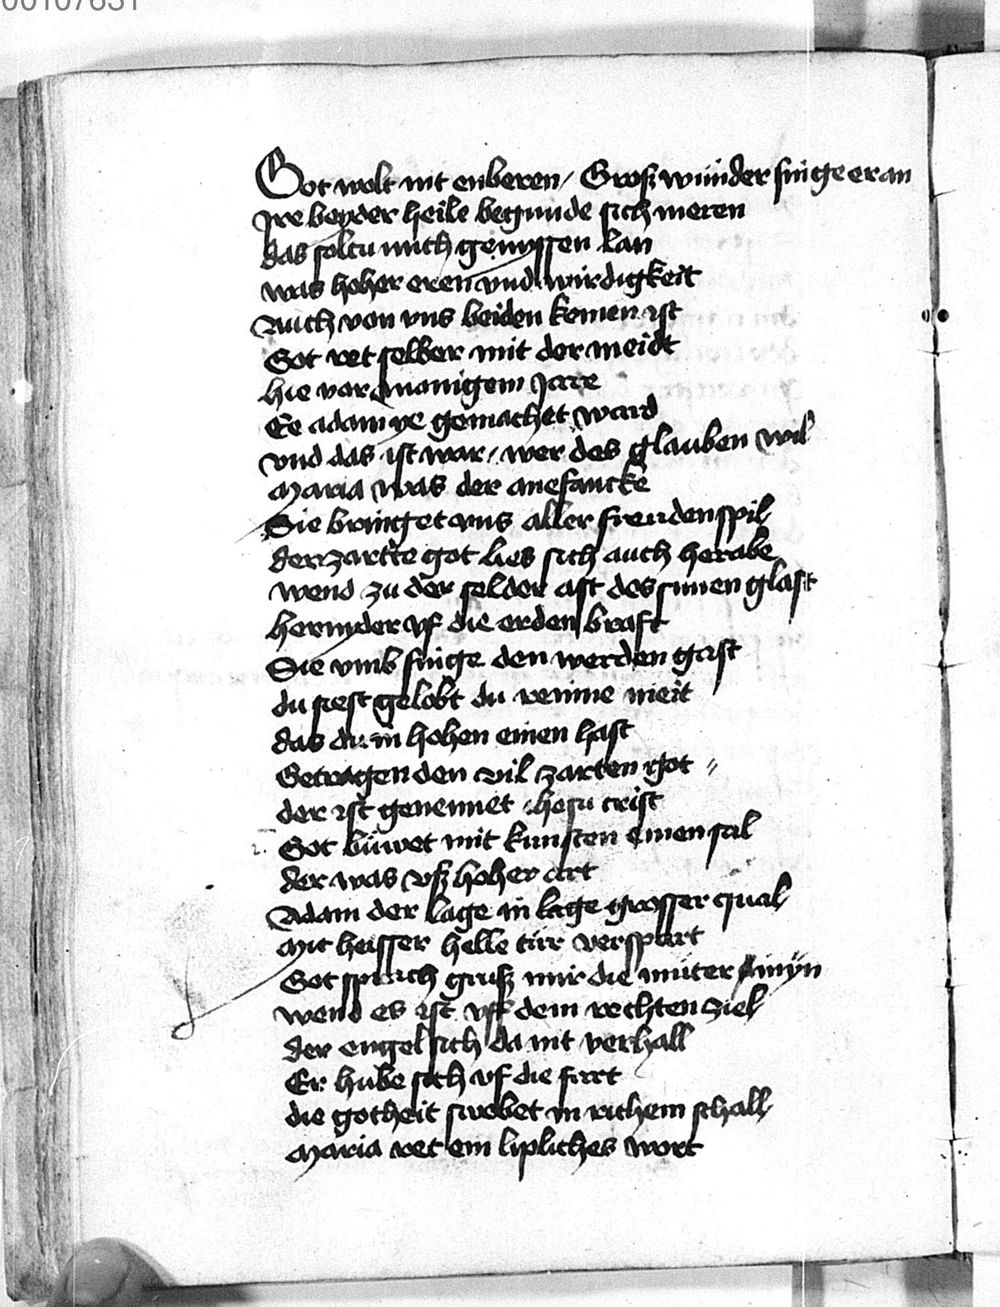 00107831
Got wolt nit enberen / Groß wunder finge er an
Jre beyder heile begunde sich meren
das soltu mich genyssen lan
was hoher eren vnd wirdigkeit
Auch von vns beiden komen ist
Got ret selber mit der meidt
hie vor manigem Jare
Ee adam ye gemachet ward
vnd das ist war / wer des glauben wil
Maria was der anefancke
Sie bringet vns aller freuden spil
der zartte got lies sich auch herabe
wend zu der selden ast des sunnen glast
hernyder vf die erden brast
Sie vmb finge den werden gast
du siest gelobt du reinne meit
das du in hohen einen hast
Getragen den vil zarten got //
der ist genennet ihesu crist
Got buwet mit kunsten einen sal
der was vß hoher art
Adam der lage in lage grosser qual
Mit heisser helle türr verspart
Got sprach gruß mir die muter myn
wend es ist vff dem rechten ziel
der engel sich da nit verhall
Er hube sich vf die fart
die gotheit swebet in richem schall
Maria ret ein lipliches wort